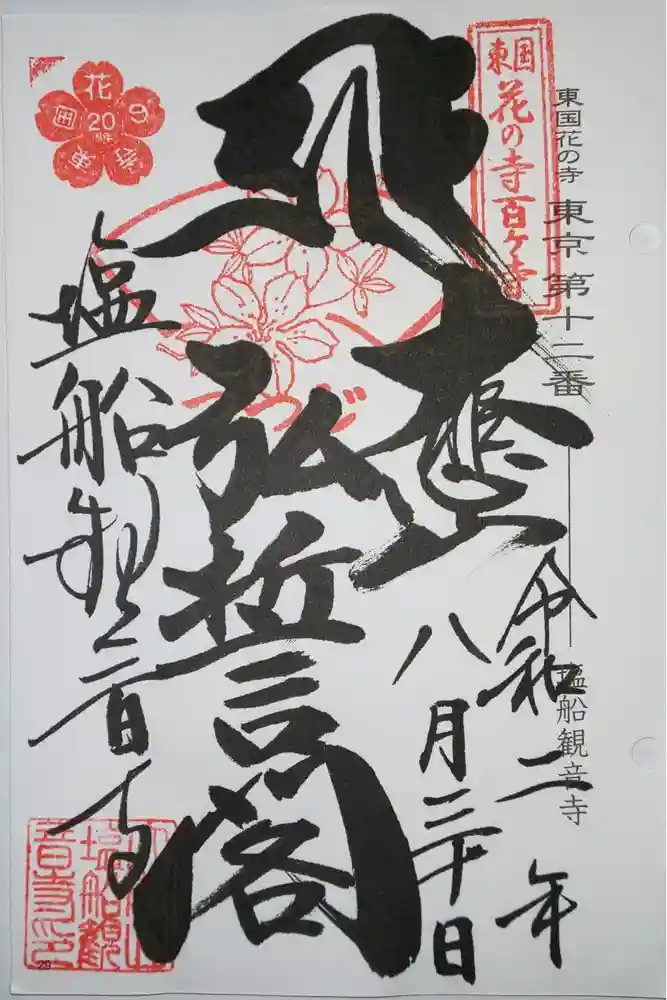 東国花の寺 東京第十二番
塩船観音寺
東国
花の寺百ヶ寺
花の寺
東国
20周年
つつじ
大悲山
弘誓閣
令和二年
八月三十日
塩船観音寺